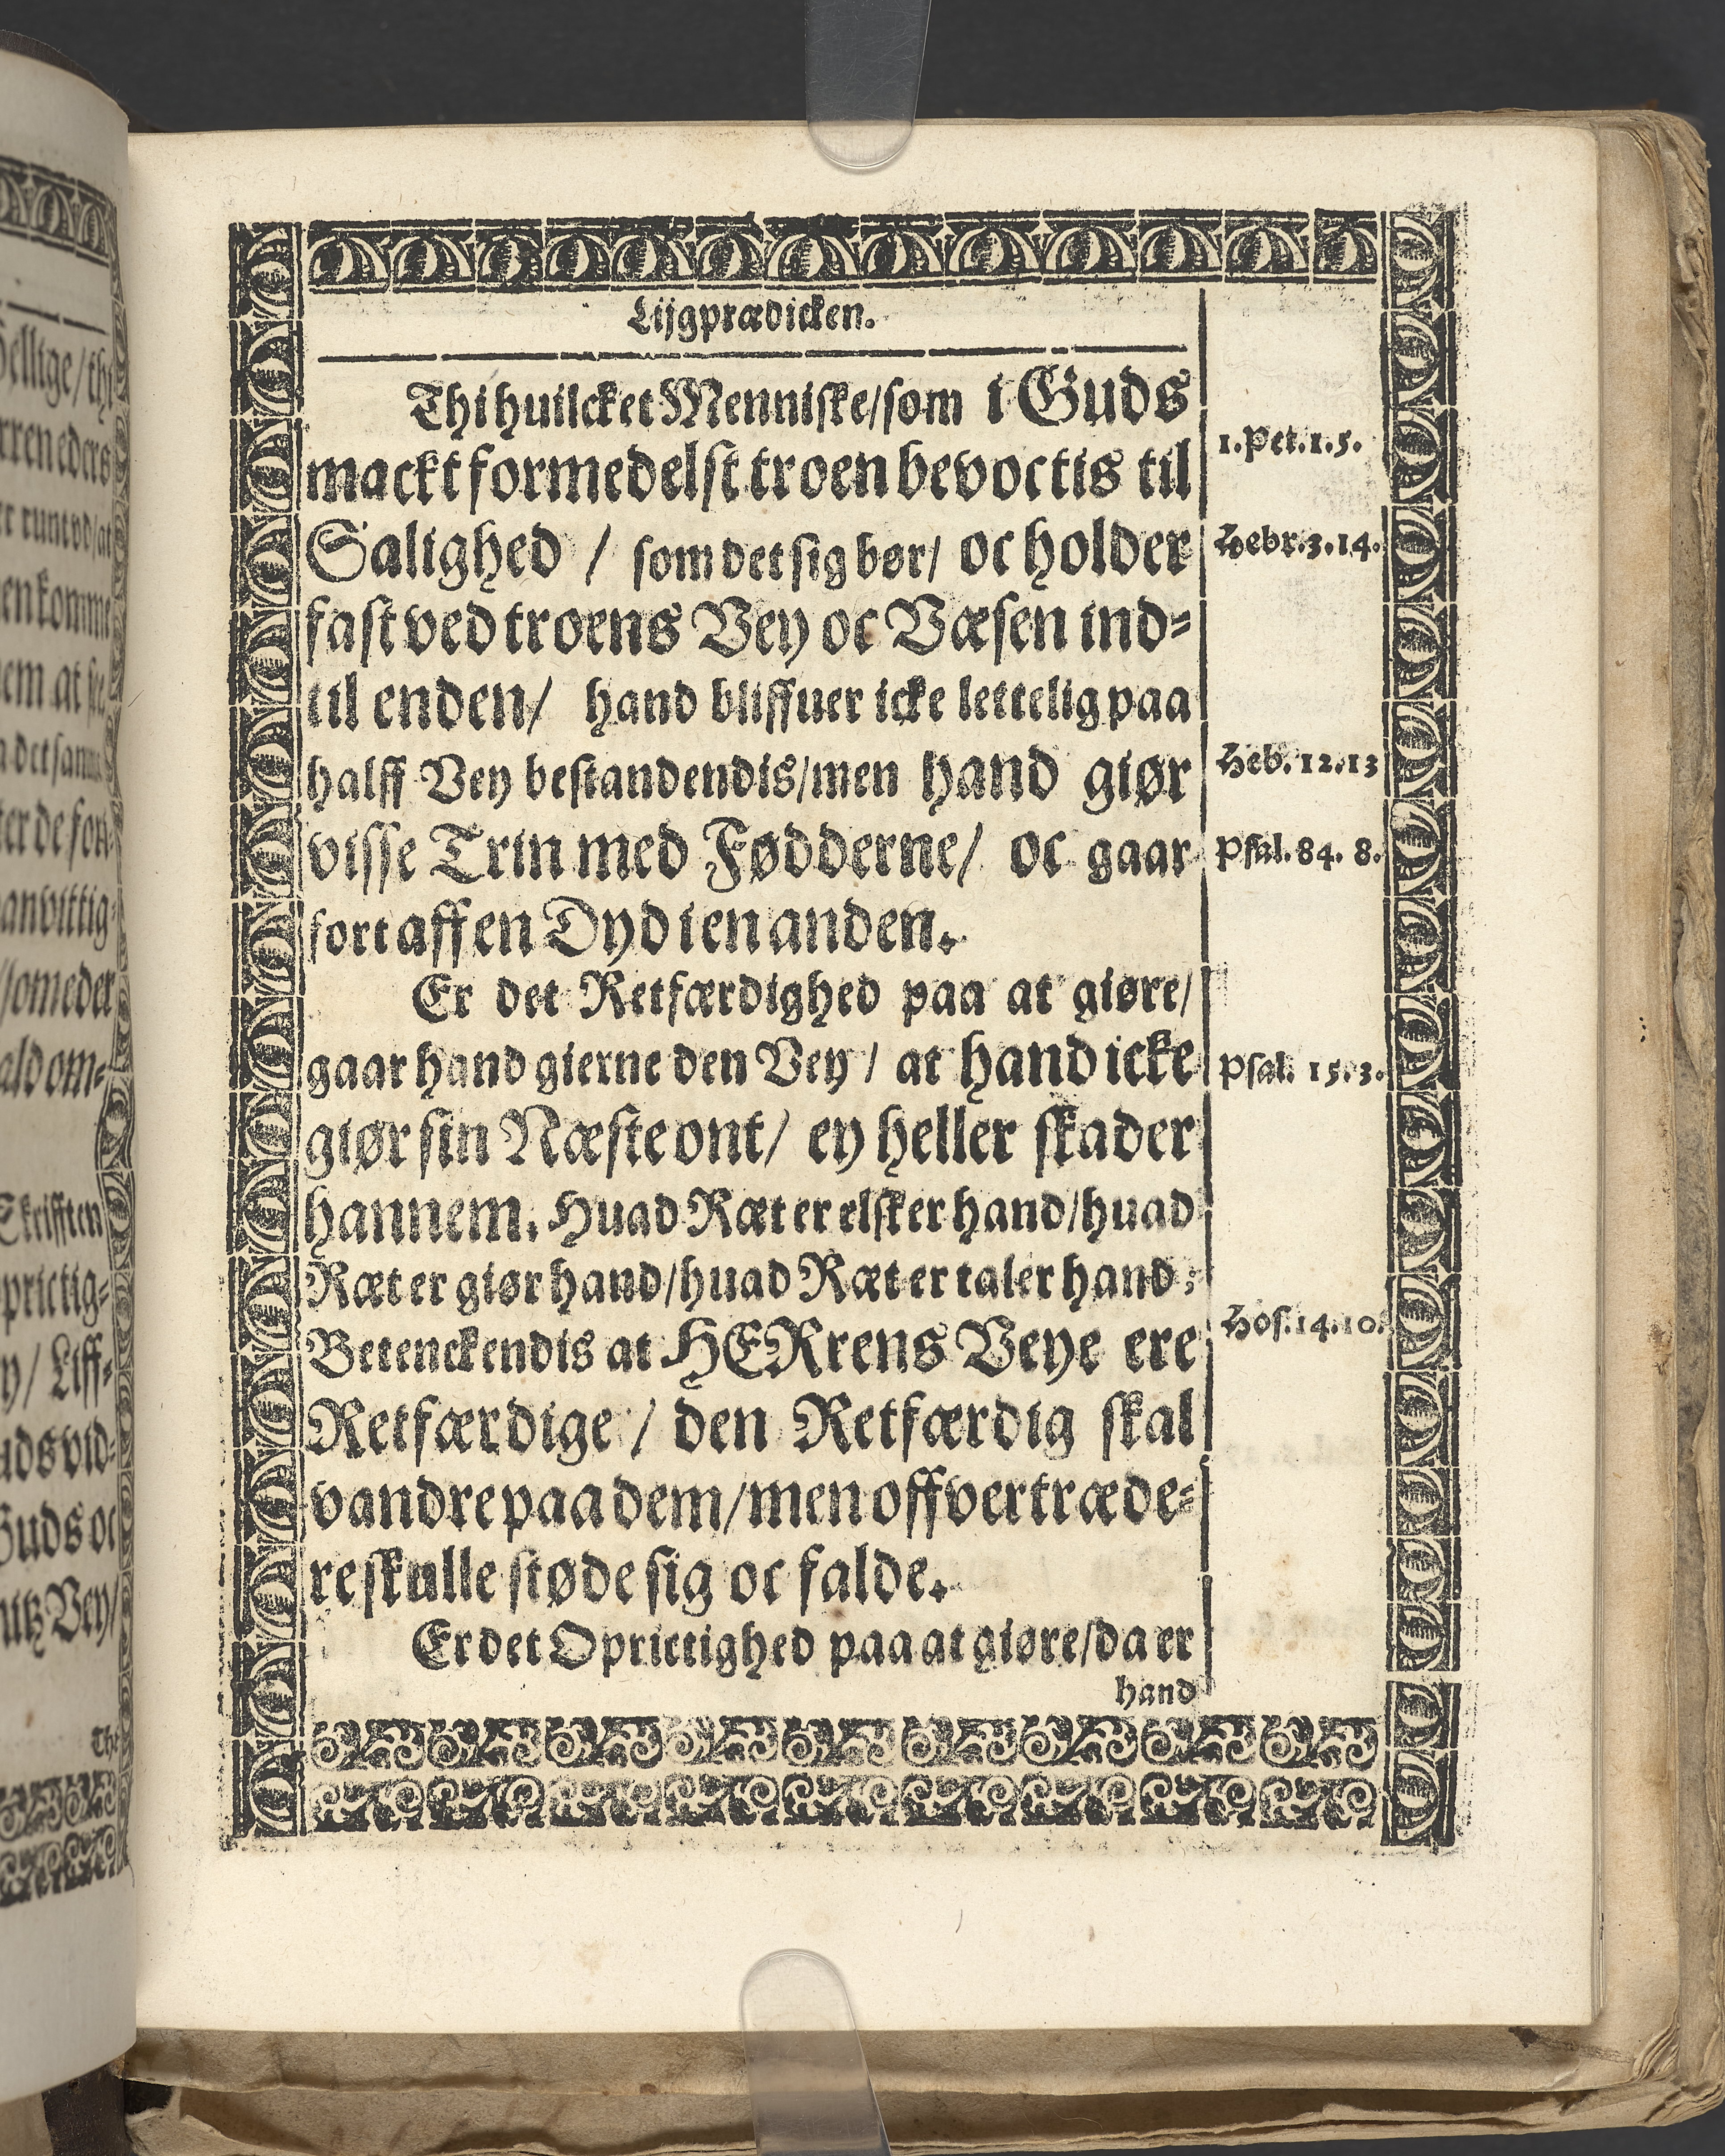 Lijgprædicken.
Thi huilcket Menniske/som i Guds
mackt formedelst troen bevoctis til
Salighed / som det sig bør/ oc holder
fast ved troens Vey oc Væsen ind⸗
til enden/ hand bliffuer icke lettelig paa
halff Vey bestandendis/men hand giør
visse Trin med Fødderne/ oc gaar
fort aff en Dyd i en anden.
Er det Retfærdighed paa at giøre/
gaar hand gierne den Vey / at hand icke
giør sin Næste ont/ ey heller skader
hannem. Huad Ræt er elsker hand/huad
Ræt er giør hand/huad Ræt er taler hand;
Betenckendis at HERrens Veye ere
Retfærdige / den Retfærdig skal
vandre paa dem/men offvertræde⸗
re skulle støde sig oc falde.
Er det Oprictighed paa at giøre/da er
hand
1.Pet.1.5.
Hebr.3.14.
Heb. 12.13
Psal. 84. 8.
Psal. 15.3.
Hos.14.10.